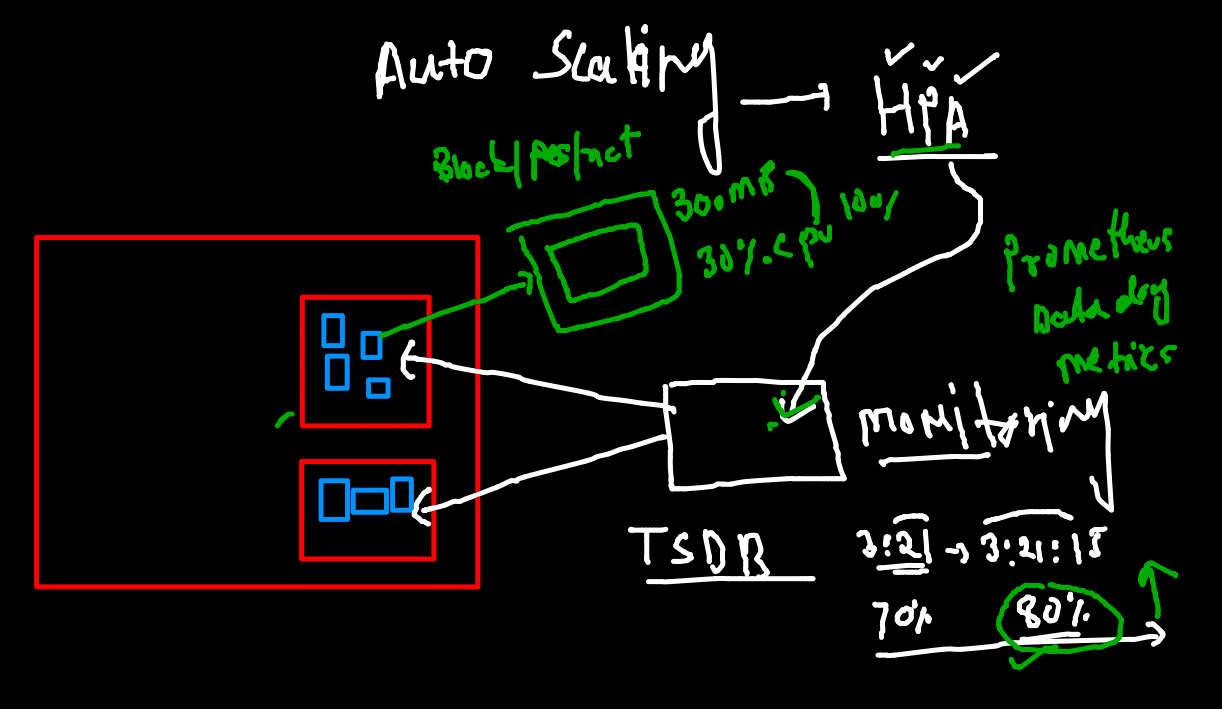 Auto Scaling → HPA
Block/pos/nct
300MB
30%.cpu
100%
Prometheus
Datadog
metrics
monitoring
TSDB
3:21 → 3:21:15
70%
80%